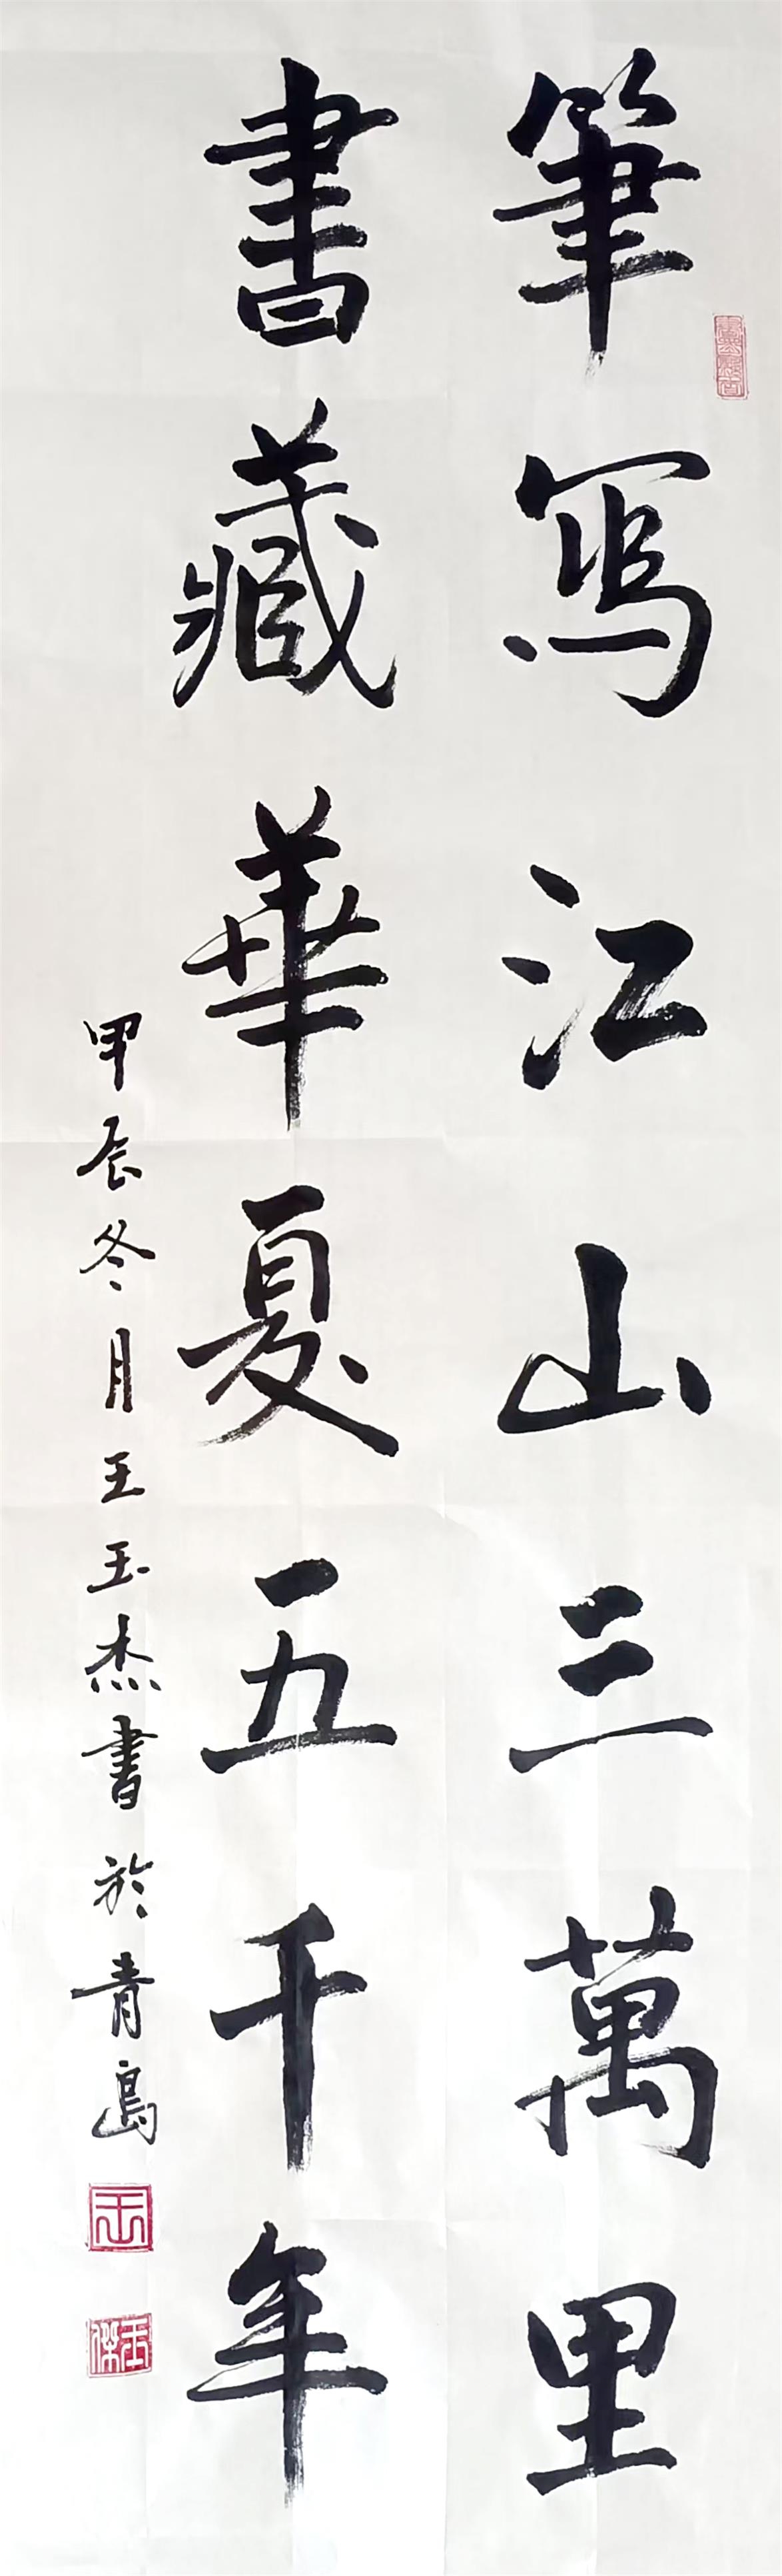 筆寫江山三萬里
書藏華夏五千年
甲辰冬月王玉杰書於青島
王
玉傑